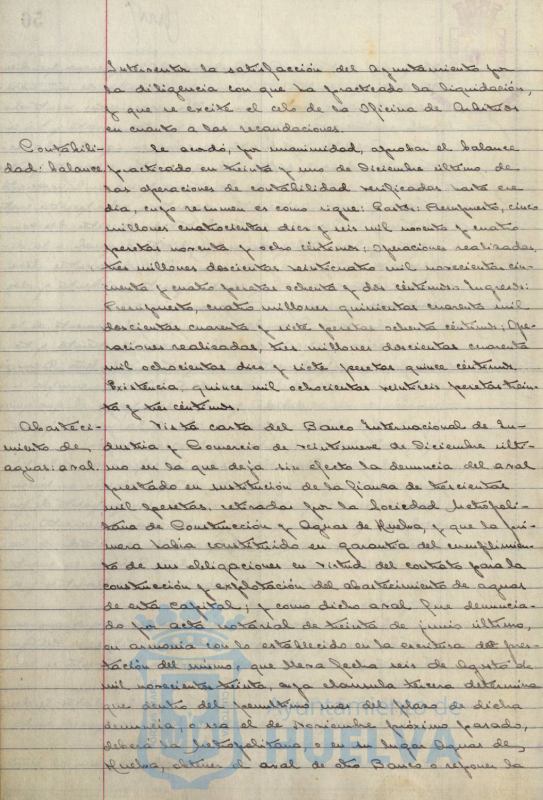 Interventor la satisfacción del Ayuntamiento por
la diligencia con que ha practicado la liquidación,
y que se excite el celo de la Oficina de Arbitrios
en cuanto a las recaudaciones.
Contabili- Se acordó, por unanimidad, aprobar el balance
dad: balance practicado en treinta y uno de Diciembre último, de
las operaciones de contabilidad verificadas hasta ese
día, cuyo resumen es como sigue: Gastos: Presupuesto, cinco
millones cuatrocientas diez y seis mil noventa y cuatro
pesetas noventa y ocho céntimos; Operaciones realizadas,
tres millones doscientas veinticuatro mil novecientas cin-
cuenta y cuatro pesetas ochenta y dos céntimos. Ingresos:
Presupuesto, cuatro millones quinientas cuarenta mil
doscientas cuarenta y siete pesetas ochenta céntimos; Ope-
raciones realizadas, tres millones doscientas cuarenta
mil ochocientas diez y siete pesetas quince céntimos.
Existencia, quince mil ochocientas veintiseis pesetas trein-
ta y tres céntimos.
Abasteci- Vista carta del Banco Internacional de In-
miento de dustria y Comercio de veintinueve de Diciembre últi-
aguas: aval. mo en la que deja sin efecto la denuncia del aval
prestado en sustitución de la fianza de trescientas
mil pesetas, retiradas por la Sociedad Metropoli-
tana de Construcción y Aguas de Huelva, y que la pri-
mera había constituido en garantía del cumplimien-
to de sus obligaciones en virtud del contrato para la
construcción y explotación del abastecimiento de aguas
de esta capital; y como dicho aval fue denuncia-
do por acta notarial de treinta de junio último,
en armonía con lo establecido en la escritura de pres-
tación del mismo, que lleva fecha seis de Agosto de
mil novecientos treinta, cuya clausula tercera determina
que dentro del penúltimo mes del plazo de dicha
denuncia, o sea el de Noviembre próximo pasado,
deberá la Metropolitana, o en su lugar Aguas de
Huelva, obtener el aval de otro Banco o reponer la
Ayuntamiento de
HUELVA